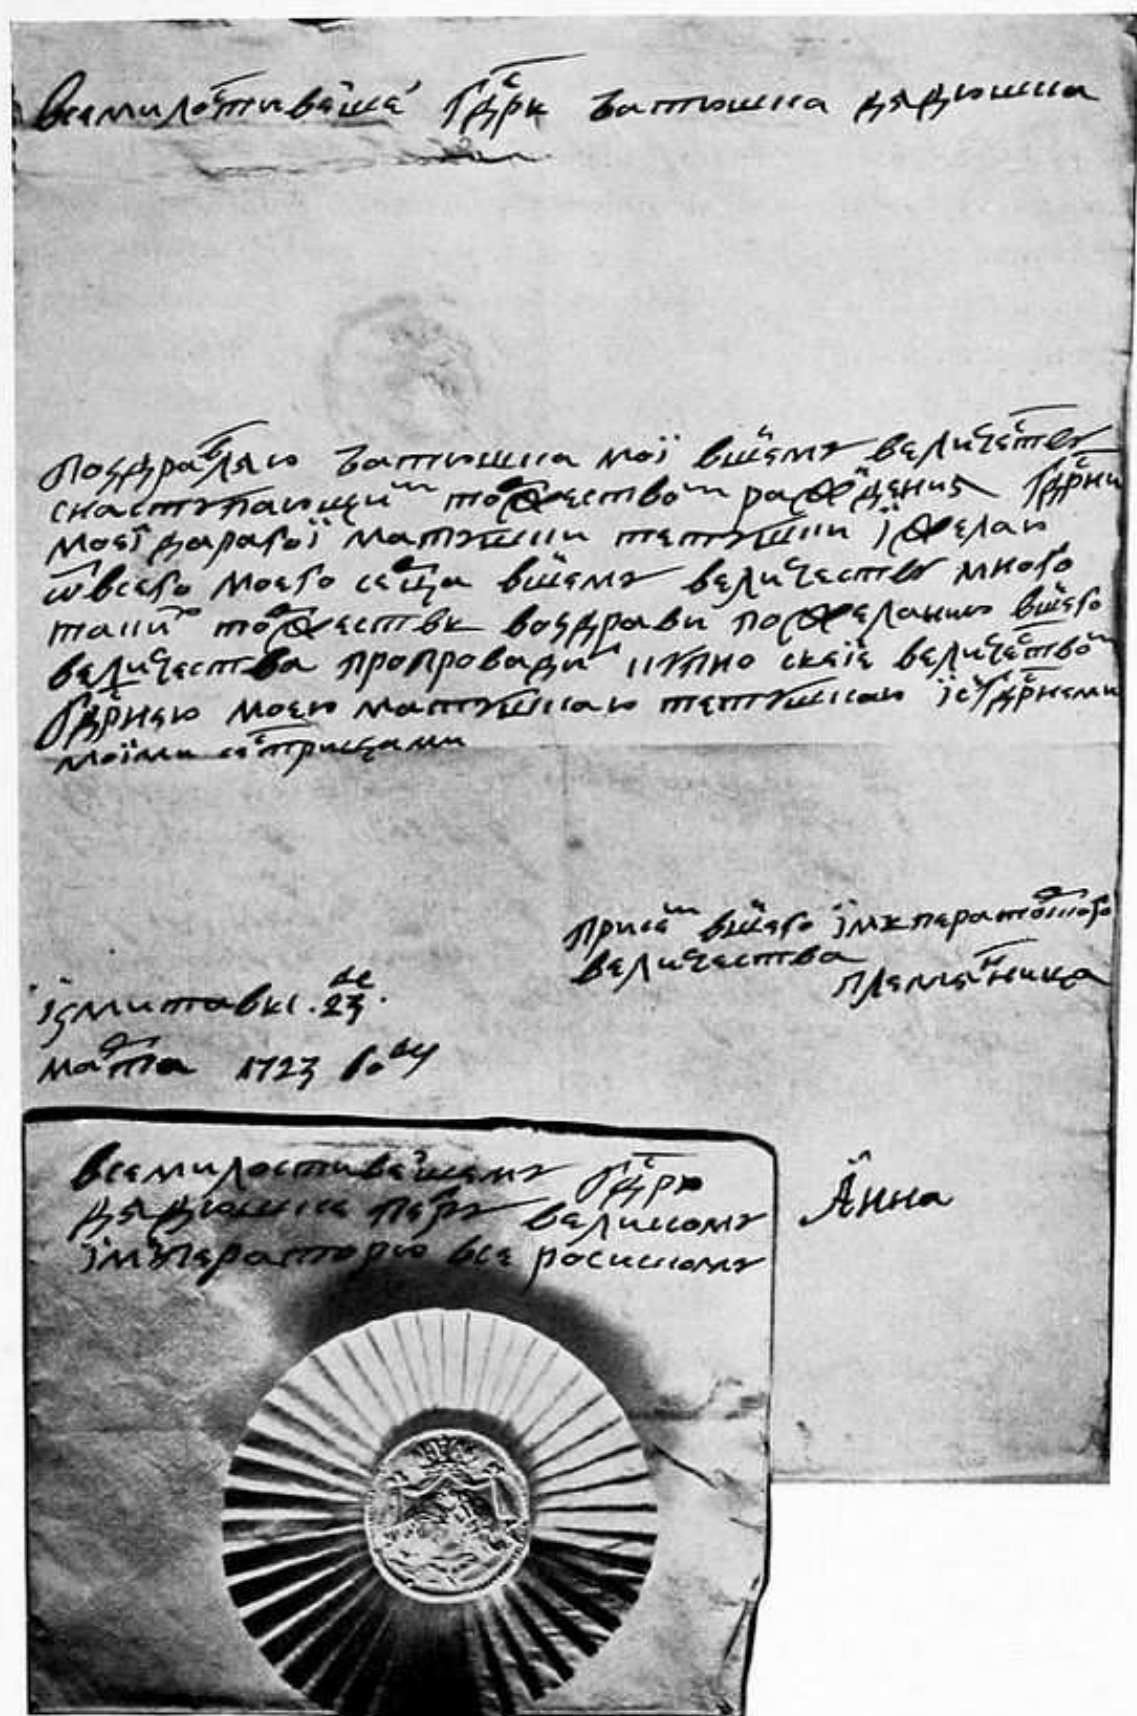 всемилостивѣшеи гдрь батюшка дядюшка
поздравляю батюшка мои вшему величеству
снаступающим тожеством ражѣдения гдрни
моеі дарагоі матушки тетушки і желаю
ѿ всего моего сеца вшему величеству много
таких тожествъ воздрави по желанию вшего
величества препроводи купно скеіе величеством
гдрнею моею матушкаю тетушкаю ісгдрнеми
моіми сестрицами
при сем вшего імператорского
величества
племенница
ізмитавы . 23 .
марта 1723 году
Анна
всемилостивеишему гдрю
дядюшке петру великому
імператорю все росискому